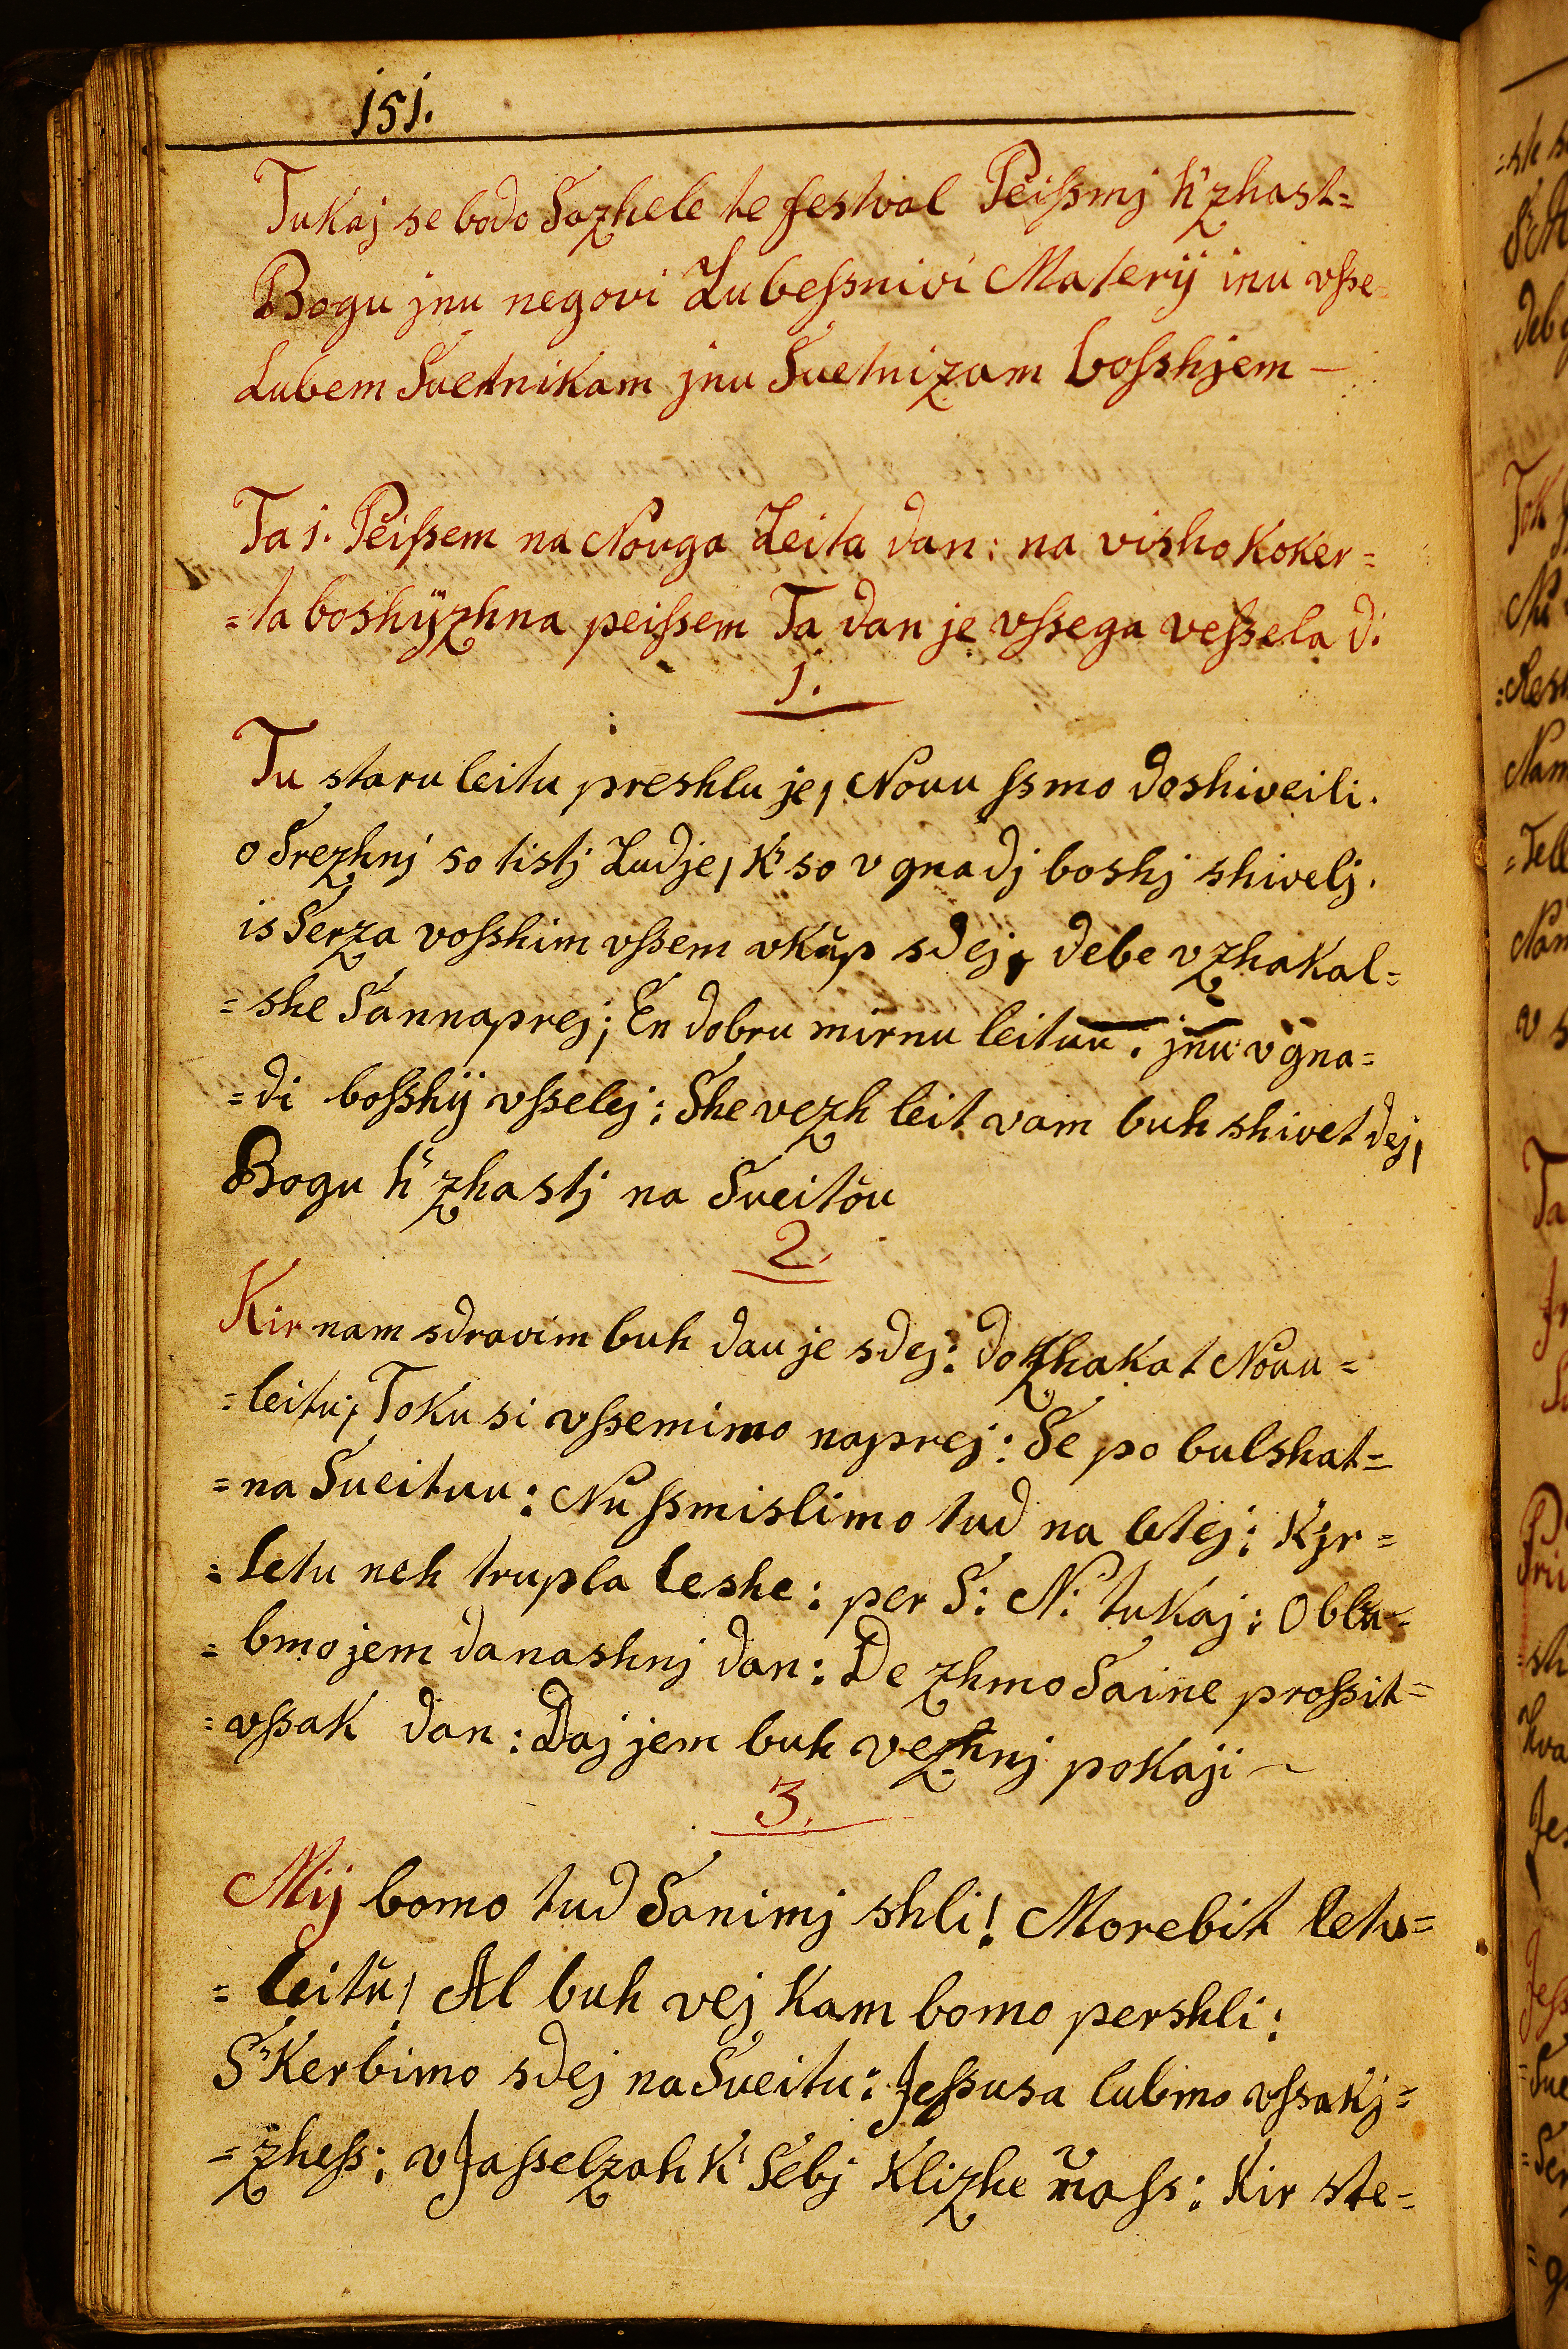 151.
Tukaj se bodo Sazhele te festval Peißmj h' zhast=
Bogu jnu negovi Lubeßnivi Materij inu vße=
Lubem Svetnikam jnu Svetnizam boßhjem —
Ta 1. Peißem na Nouga Leita dan: na visho koker=
=ta boshÿzhna peißem Ta dan je vßega veßela d:
1.
Tu staru leitu preshlu je, Nouu ßmo doshiveili.
o Srezhnj so tistj Ludje, K' so v gnadj boshj shivelj.
is Serza voßhim vßem vkŭp sdej, debe vzhakal=
=she Sannaprej; En dobru mirnu leituu: jnu v gna=
=di boßhij vßelej: She vezh leit vam buh shivet dej,
Bogu h' zhastj na Sveitŏu
2.
Kir nam sdravim buh dau je sdej: dozhakat Nouu=
=leitu; Toku si vßemimo naprej: Se po bulshat=
=na Sueituu: Nu ßmislimo tud na letej: Kjr=
=letu neh trupla leshe: per S: N: tukaj: Oblu=
=bmo jem danashnj dan: De zhmo Saine proßit=
=vßak dan: Daj jem buh vezhnj pokaji ~
3.
Mij bomo tud Sanimj shli! Morebit letu=
=leitŭ! Al buh vej kam bomo pershli:
S'kerbimo sdej na Sueitu: Jeßusa lubmo vßakj=
=zheß: v Jaßelzah k' Sebj klizhe naß: Kir ste=